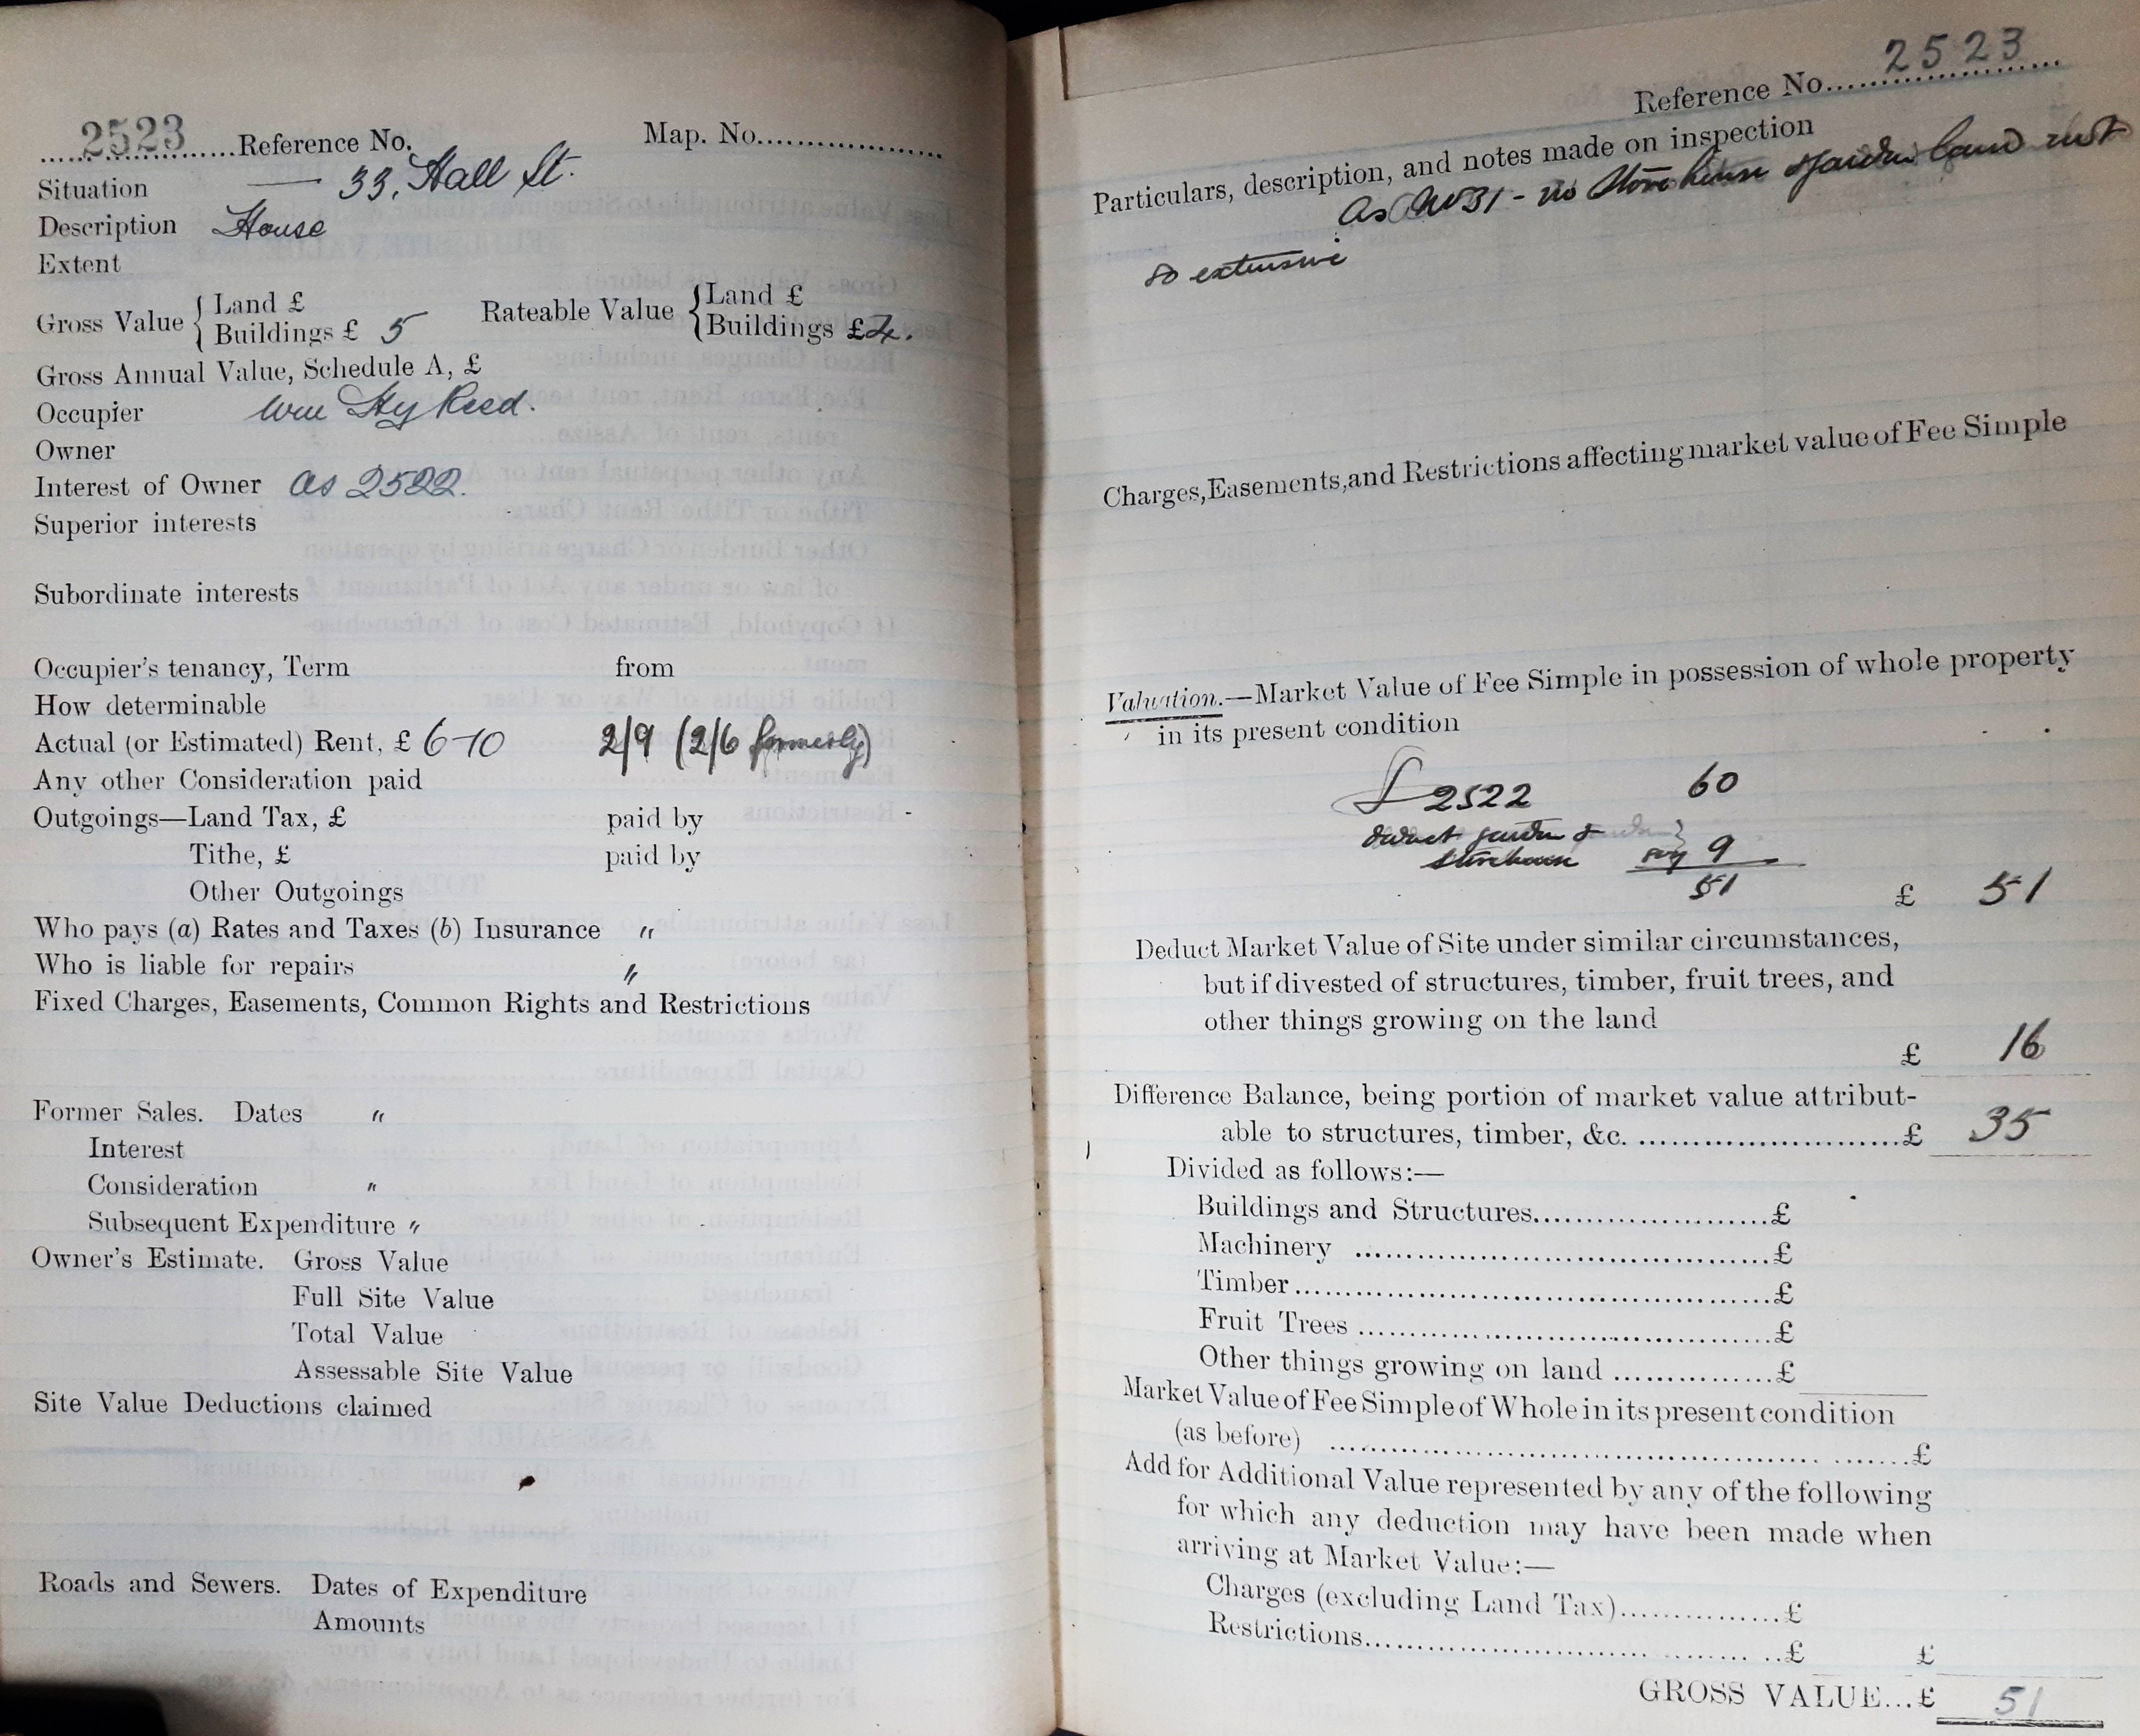 2523 Reference No. Map. No.
Situation — 33, Hall St.
Description House
Extent
Gross Value { Land £ Rateable Value { Land £
Buildings £ 5 Buildings £ 4.
Gross Annual Value, Schedule A, £
Occupier Wm Hy Reed.
Owner
Interest of Owner as 2522.
Superior interests
Subordinate interests
Occupier's tenancy, Term from
How determinable
Actual (or Estimated) Rent, £ 6-10 2/9 (2/6 formerly)
Any other Consideration paid
Outgoings—Land Tax, £ paid by
Tithe, £ paid by
Other Outgoings
Who pays (a) Rates and Taxes (b) Insurance "
Who is liable for repairs "
Fixed Charges, Easements, Common Rights and Restrictions
Former Sales. Dates "
Interest
Consideration "
Subsequent Expenditure "
Owner's Estimate. Gross Value
Full Site Value
Total Value
Assessable Site Value
Site Value Deductions claimed
Roads and Sewers. Dates of Expenditure
Amounts
Reference No. 2523
Particulars, description, and notes made on inspection
As No 31 - no Storehouse & garden land not
so extensive
Charges, Easements, and Restrictions affecting market value of Fee Simple
Valuation.—Market Value of Fee Simple in possession of whole property
in its present condition
2522 60
deduct garden &
storehouse say 9
51 £ 51
Deduct Market Value of Site under similar circumstances,
but if divested of structures, timber, fruit trees, and
other things growing on the land
£ 16
Difference Balance, being portion of market value attribut-
able to structures, timber, &c. £ 35
Divided as follows:—
Buildings and Structures £
Machinery £
Timber £
Fruit Trees £
Other things growing on land £
Market Value of Fee Simple of Whole in its present condition
(as before) £
Add for Additional Value represented by any of the following
for which any deduction may have been made when
arriving at Market Value:—
Charges (excluding Land Tax) £
Restrictions £ £
GROSS VALUE...£ 51